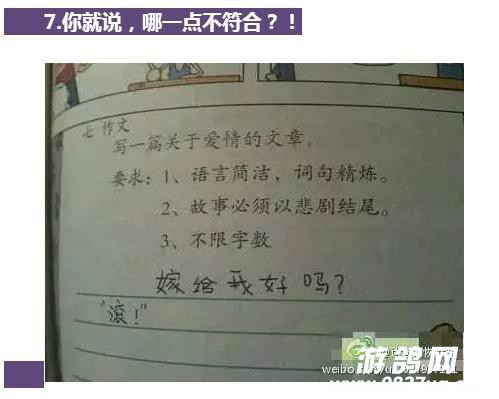 7.你就说，哪一点不符合？！
七 作文
写一篇关于爱情的文章。
要求：1、语言简洁，词句精炼。
2、故事必须以悲剧结尾。
3、不限字数
嫁给我好吗？
"滚！"
游鸽网